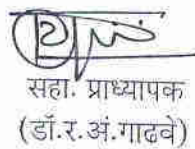 सहा. प्राध्यापक
(डॉ.र.अं.गाढवे)